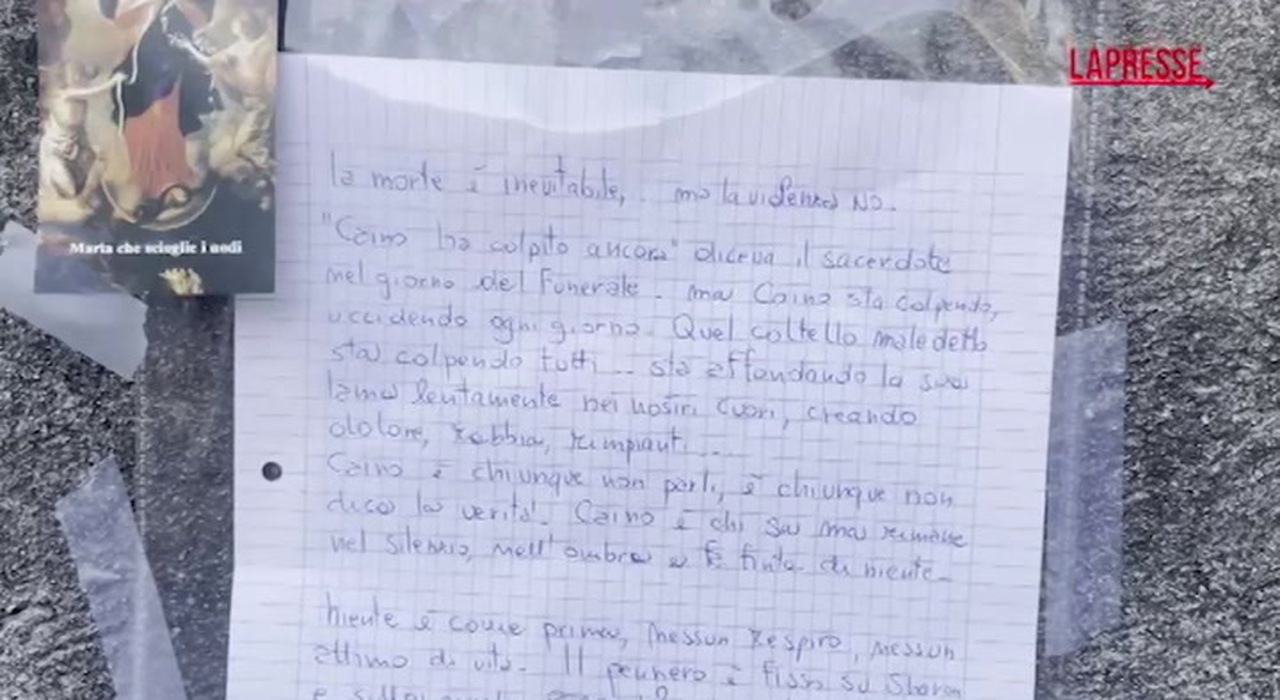 LAPRESSE
Maria che scioglie i nodi
la morte è inevitabile, ma la violenza NO.
"Caino ha colpito ancora" diceva il sacerdote
nel giorno del funerale. ma Caino sta colpendo,
uccidendo ogni giorno. Quel coltello maledetto
sta colpendo tutti... sta affondando la sua
lama lentamente nei nostri cuori, creando
dolore, rabbia, rimpianti....
Caino è chiunque non parli, è chiunque non
dica la verità. Caino è chi sa ma rimane
nel silenzio, nell'ombra e fa finta di niente.
Niente è come prima, nessun respiro, nessun
attimo di vita. Il pensiero è fisso su Sharon